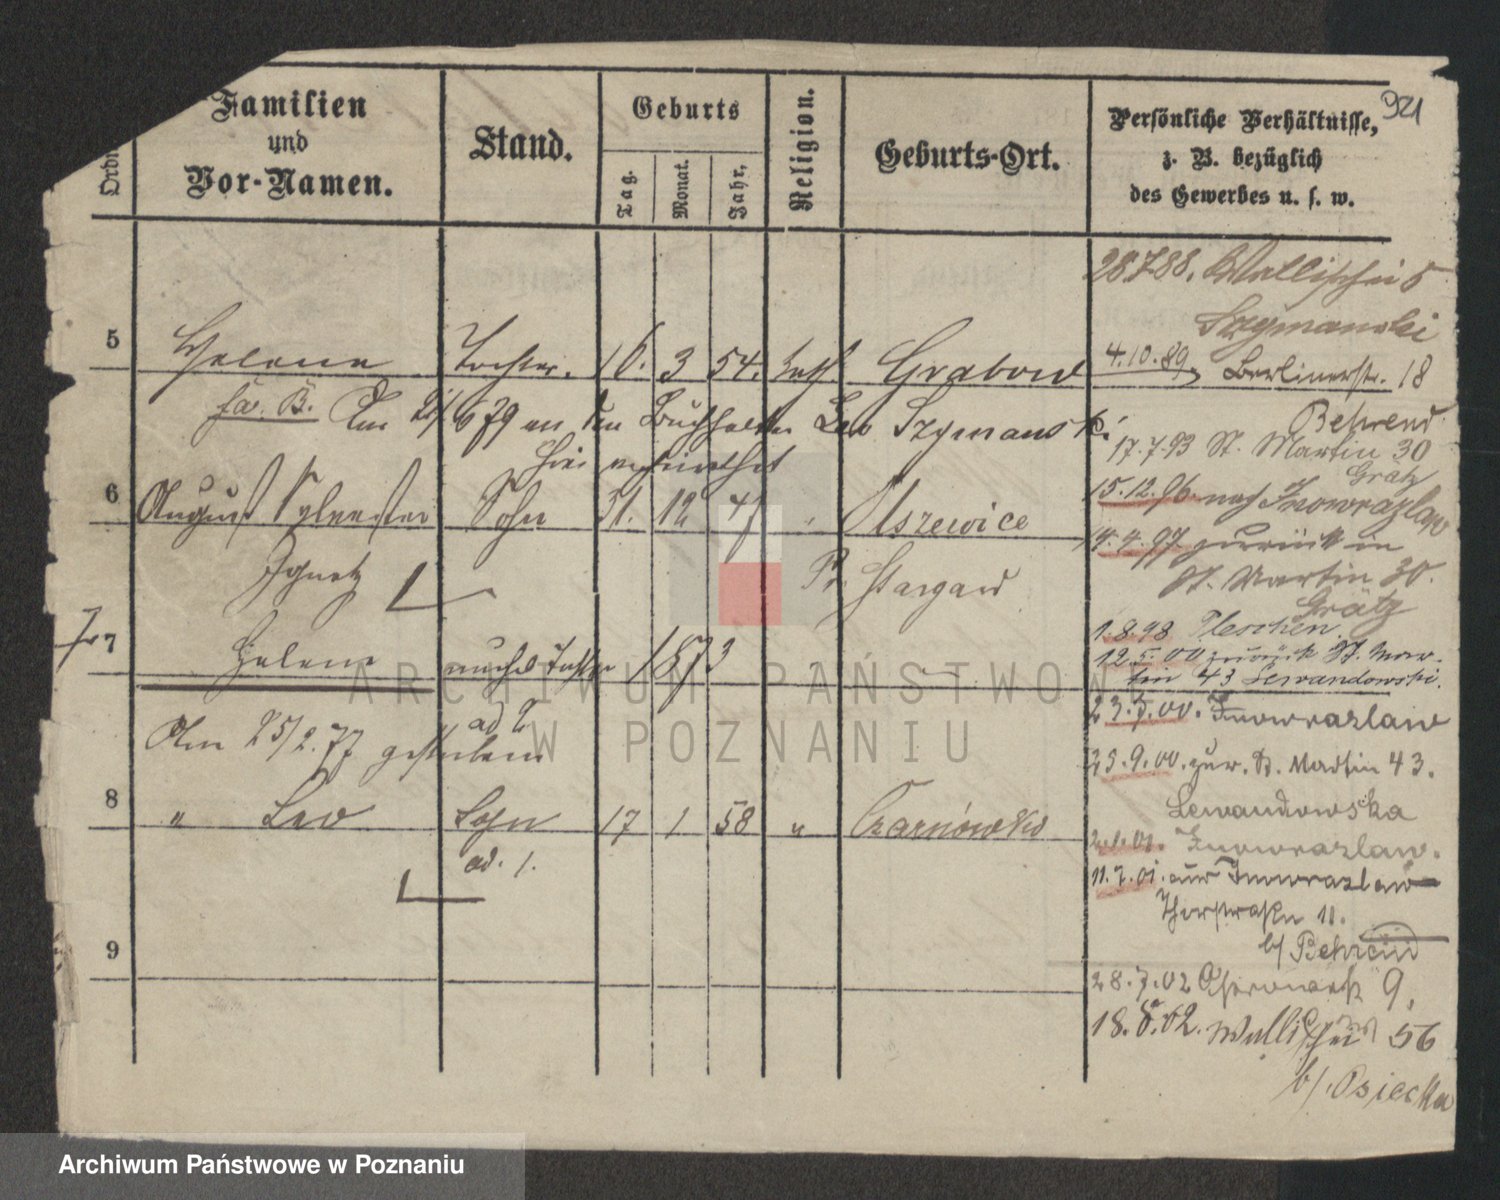 921
Familien
und
Vor-Namen.
Stand.
Geburts
Tag.
Monat.
Jahr,
Religion.
Geburts-Ort.
Persönliche Verhältnisse,
z. B. bezüglich
des Gewerbes u. s. w.
5
Helene Tochter. 16. 3 54. kath. Grabow
Am 21/6 79 an den Buchhalter Leo Szymanski
hier verheirathet
6
August Sylvester Sohn 31. 12 47 "
Ignatz
Pr. Stargard
7
Helene Tochter 1873
ad 2
Am 25/2.77 gestorben
8
" Leo Sohn 17 1 58 " Czarnówko
ad. 1.
9
28788. Wallischei 5
Szymanski
4.10.89, Berlinerstr. 18
Behrend
17.7.93 St. Martin 30
Grätz
15.12.96 nach Inowrazlaw
14.4.97 zurück in
St. Martin 30.
Grätz
1.8.98 Pleschen.
12.5.00 zurück St. Mar-
tin 43 Lewandowski.
23.7.00. Inowrazlaw
25.9.00. zur. St. Martin 43.
Lewandowska
2.1.01. Inowrazlaw.
11.7.01. aus Inowrazlaw
Thorstraße 11.
b/ Behrend
28.7.02 9.
18.8.02. Wallischei 56
b/. Osiecka
ARCHIWUM PAŃSTWOWE
W POZNANIU
Archiwum Państwowe w Poznaniu